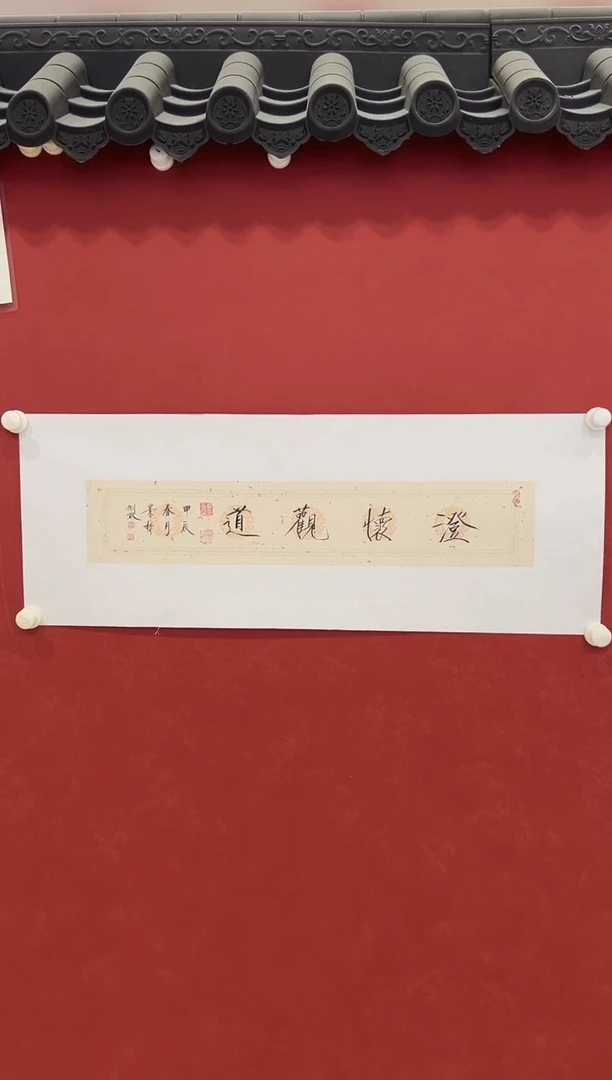 澄懷觀道
甲辰
春月